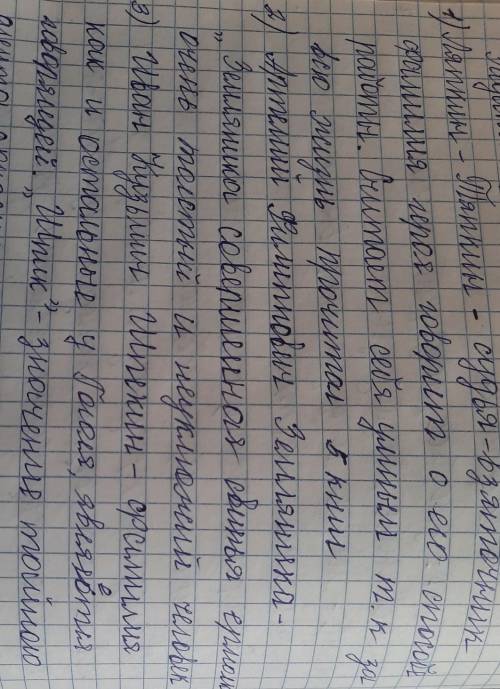 1) Ляпкин - Тяпкин - судья - взяточник
фамилия героя говорит о его
работы. Считает себя умным т.к за
всю жизнь прочитал 5 книг
2) Артемий Филиппович Земляника -
"Земляника совершенная свинья
очень толстый и неуклюжий человек
3) Иван Кузьмич Шпекин - фамилия
как и остальные у Гоголя, является
говорящей. "Шпик" - значения тайного